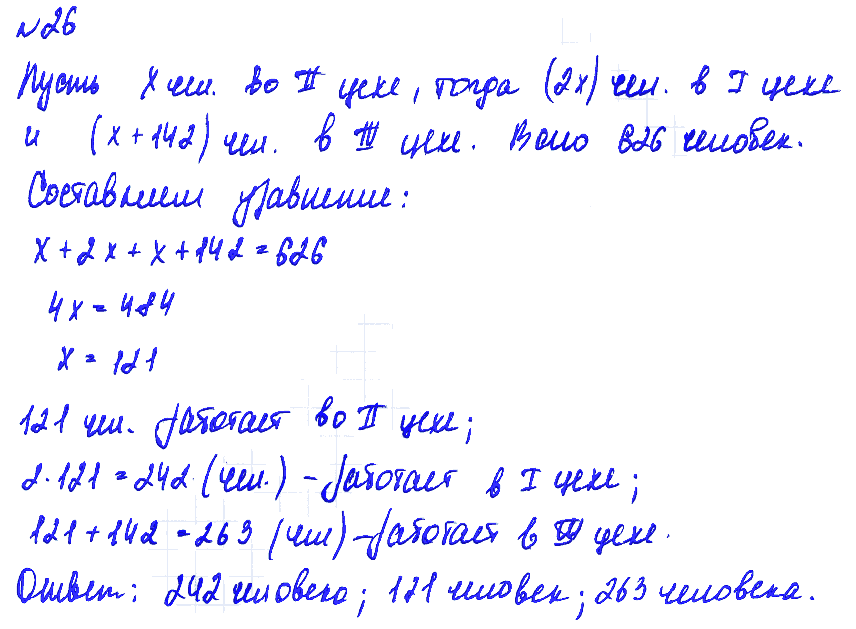 №26
Пусть x чел. во II цехе, тогда (2x) чел. в I цехе
и (x + 142) чел. в III цехе. Всего 626 человек.
Составляем уравнение:
x + 2x + x + 142 = 626
4x = 484
x = 121
121 чел. работает во II цехе;
2·121 = 242 (чел.) – работает в I цехе;
121 + 142 = 263 (чел) – работает в III цехе.
Ответ: 242 человека; 121 человек; 263 человека.